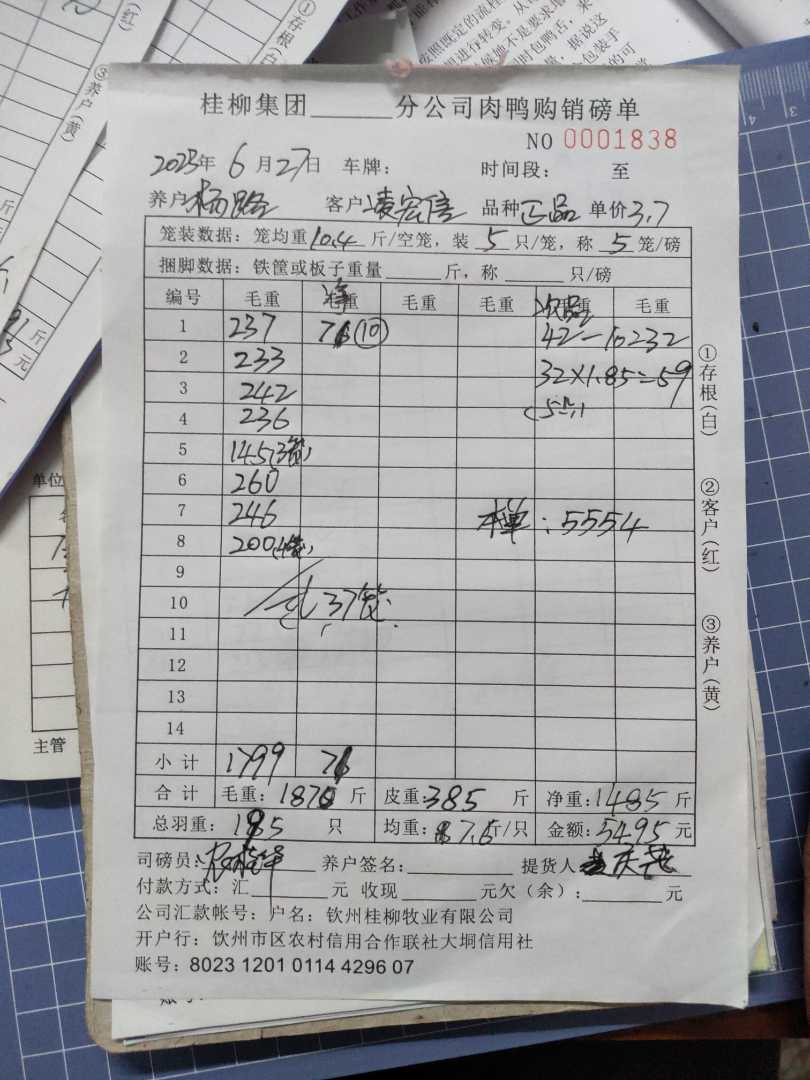 桂柳集团______分公司肉鸭购销磅单
NO 0001838
2023年 6 月 27日 车牌： 时间段： 至
养户 杨路 客户 凌宏信 品种 正品 单价 3.7
笼装数据：笼均重 10.4 斤/空笼，装 5 只/笼，称 5 笼/磅
捆脚数据：铁筐或板子重量______斤，称______只/磅
编号 毛重 净重 毛重 毛重 次品 毛重
1 237 76 (10) 42-10=32
2 233 32×1.85=59
3 242 (5只)
4 236
5 145(3笼)
6 260
7 246 本单：5554
8 200(4笼)
9
10 共37笼
11
12
13
14
小计 1799 76
合计 毛重：1870 斤 皮重：385 斤 净重：1485 斤
总羽重：195 只 均重：7.6 斤/只 金额：5495 元
司磅员： 养户签名： 提货人
付款方式：汇______元 收现______元欠（余）：______元
公司汇款帐号：户名：钦州桂柳牧业有限公司
开户行：饮州市区农村信用合作联社大垌信用社
账号：8023 1201 0114 4296 07
①存根(白)
②客户(红)
③养户(黄)
①存根(白
(红)
③养户(黄)
斤
斤
元
单位
主管